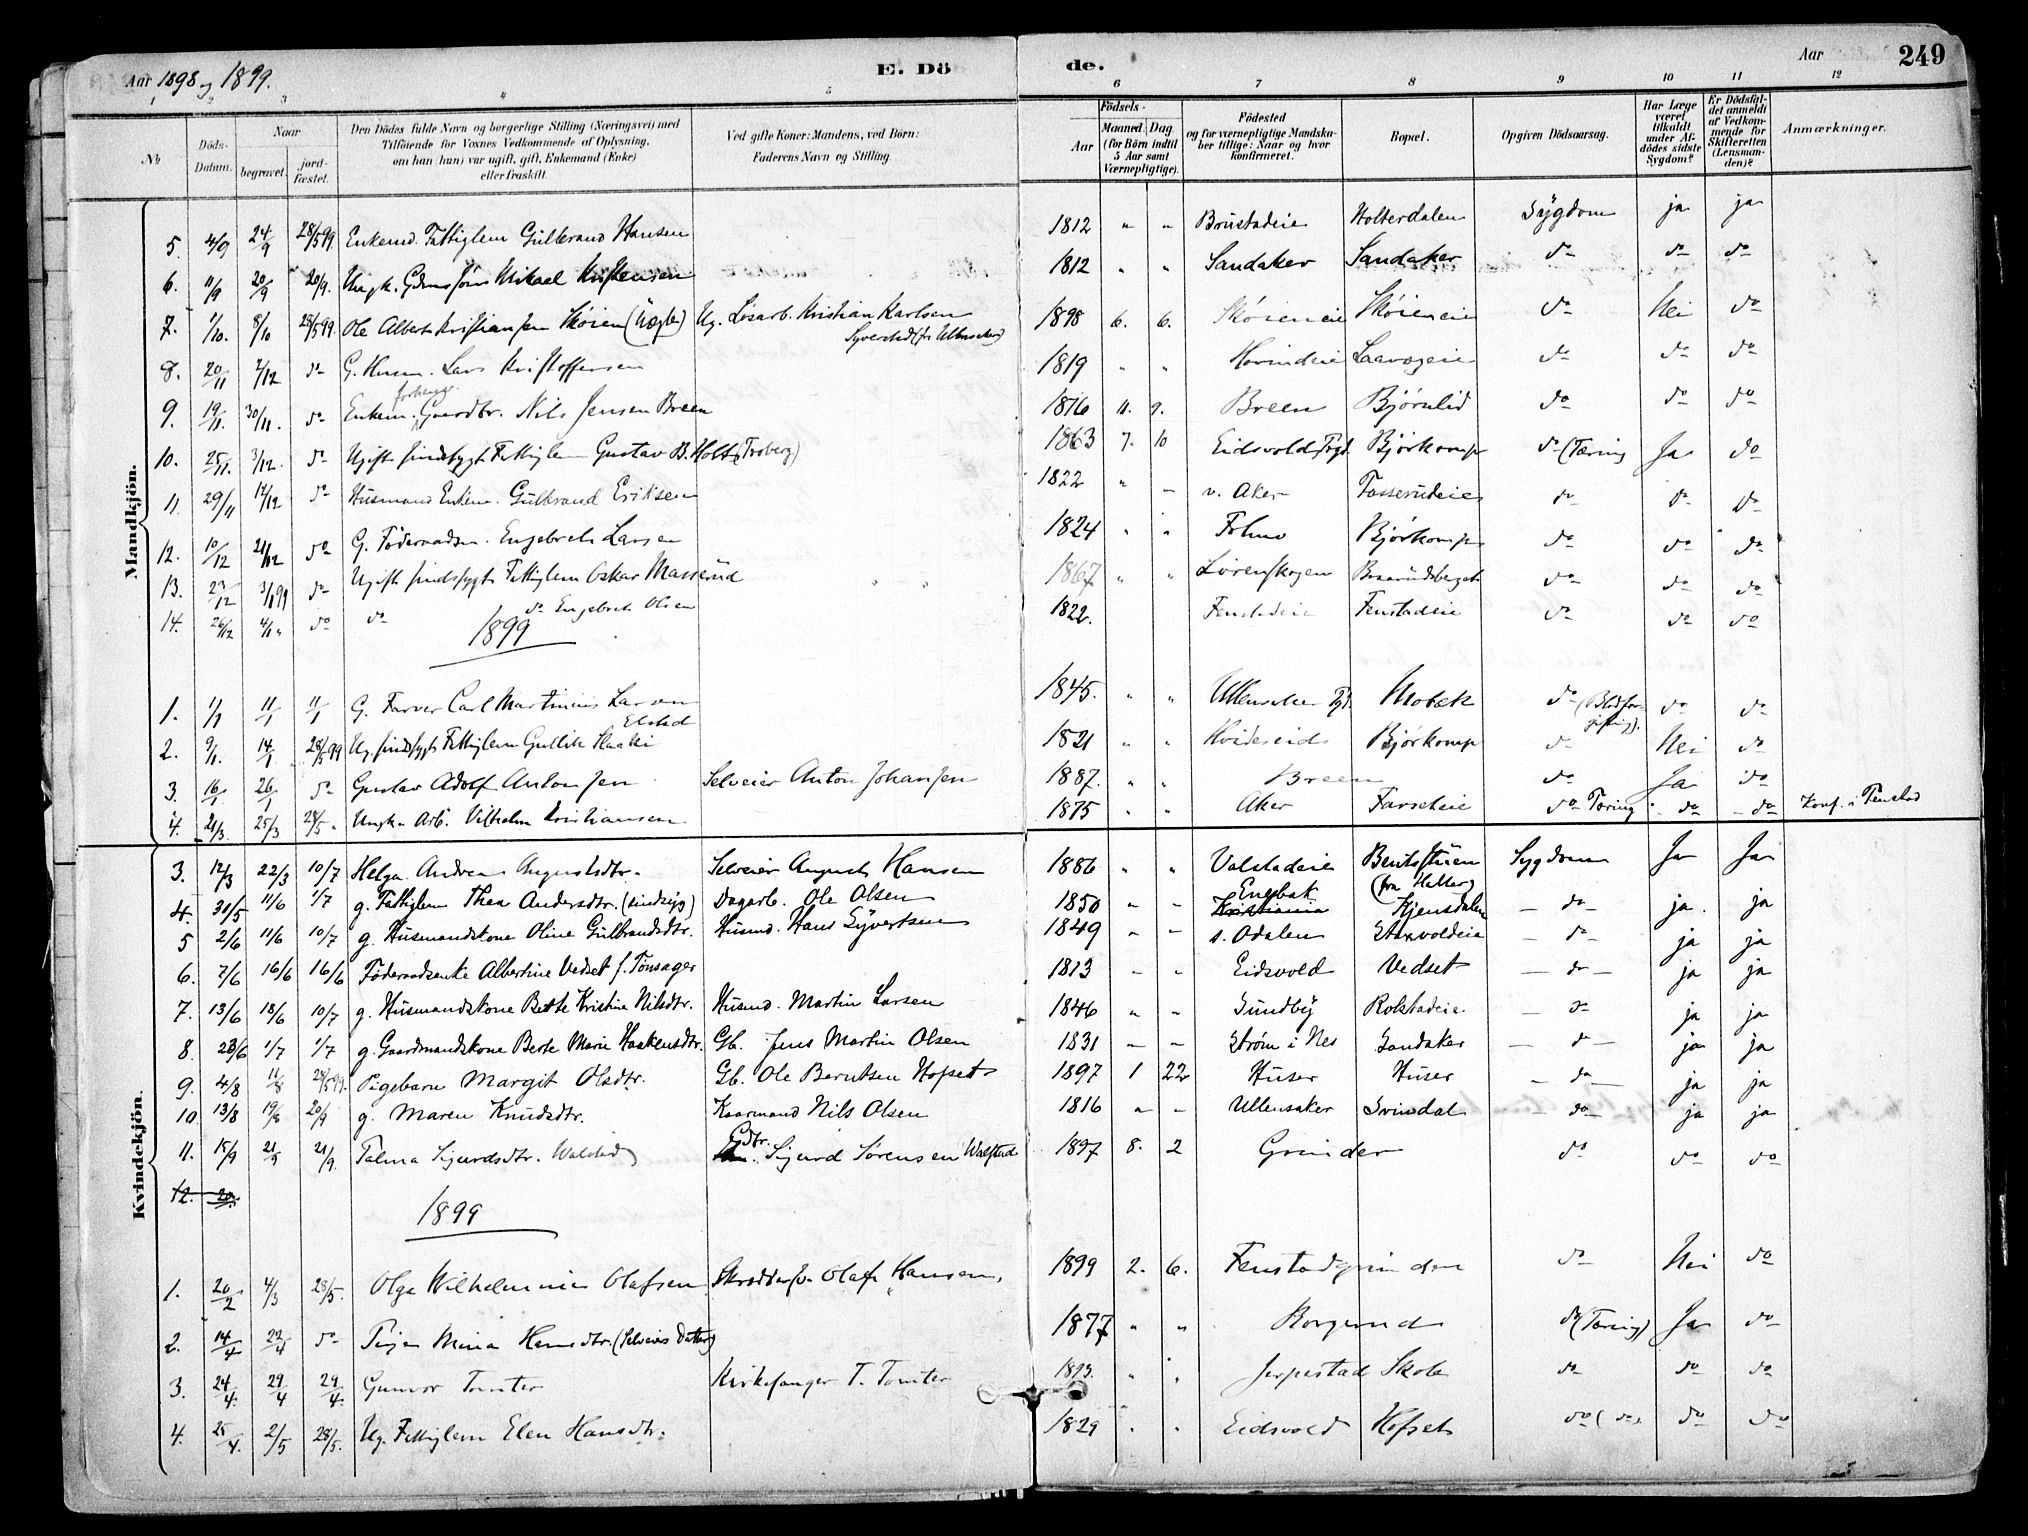 Aar 1898 og 1899. E. Döde. Aar 249
1 2 3 4 5 6 7 8 9 10 11 12
No
Döds-Datum.
Naar begravet. jordfæstet.
Den Dödes fulde Navn og borgerlige Stilling (Næringsvei) med Tilföiende for Voxnes Vedkommende af Oplysning, om han (hun) var ugift, gift, Enkemand (Enke) eller fraskilt.
Ved gifte Koner: Mandens, ved Börn: Faderens Navn og Stilling.
Födsels- Aar Maaned. Dag. (for Börn indtil 5 Aar samt Værnepligtige).
Födested og for værnepligtige Mandskaber tillige: Naar og hvor konfirmeret.
Bopæl.
Opgiven Dödsaarsag.
Har Læge været tilkaldt under Afdödes sidste Sygdom?
Er Dödsfaldet anmeldt af Vedkommende for Skifteretten (Lensmanden)?
Anmærkninger.
Mandkjön.
5. 4/9 24/9 28/5 99. Enkemd. Fattiglem Gulbrand Hansen 1812 " " Brustadeie Holterdalen Sygdom ja ja
6. 11/9 20/9 20/9. Ungk. Mikael Kristensen 1812 " " Sandaker Sandaker do do do
7. 1/10. 8/10 28/5 99 Ole Albert Kristiansen Sköien (Uægte) Ug. Lösarb. Kristian Karlsen 1898 6. 6. Sköieneie Sköieneie do Nei do
Syverstad (fr Ullensaker)
8. 20/11 7/12 do G. Husm. Lars Kristoffersen 1819 " " Hovindeie Laavegeie do do do
9. 19/11. 30/11. do Enkem. Gaardbr. Nils Jensen Breen 1816 11. 9. Breen Björnlid do do do
10. 25/11. 3/12. do Ugift sindssygt Fattiglem Gustav B. Holt (Troberg) 1863 7. 10 Eidsvold Pgd. Björkomp do (Tæring Ja do
11. 29/11 14/12 do Husmand Enkem. Gulbrand Eriksen 1822 " - v. Aker Fosserudeie do do do
12. 10/12 21/12 do G. Föderaadsm. Engebret Larsen 1824 " " Björkomp do do do
13. 23/12 3/1 99 do Ugift sindssygt Fattiglem Oskar Masserud 1867 " " Lörenskogen Braarudsberget do do do
14. 26/12 4/1 " do do do Engebret Olsen 1822. Fenstadeie Fenstadeie do do do
1899
1. 1/1 11/1 11/1 G. Farver Carl Martinius Larsen 1845. " " Ullensaker Pgd. Mobæk do (Blodforgiftning). do do
Elstad
2. 9/1. 14/1 28/5 99 Ug. sindssygt Fattiglem Gullik Haaki 1821 " " Hvideseid Björkomp do Nei do
3. 16/1. 26/1 do Gustav Adolf Antonsen Selveier Anton Johansen 1887. " " Breen do Ja do
4. 21/3. 25/3 28/5 " Ungk. Arb. Vilhelm Kristiansen 1875 " " Aker Farseteie do Tæring do do Konf. i Fenstad
Kvindekjön.
3. 12/3 22/3 10/7 Helga Andrea Augustsdtr. Selveier August Hansen 1886 " " Valstadeie Bentsstuen Sygdom Ja Ja
(fra Halter)
4. 31/5 11/6 1/7 g. Fattiglem Thea Andersdtr. (sindssyg) Dagarb. Ole Olsen 1850 - - Engbak Kristiania Kjensdalen - do - ja. ja
5 2/6 11/6 10/7 g. Husmandskone Oline Gulbrandsdtr. Husmd. Hans Syvertsen 1849 - - s. Odalen Starvoldeie - do - ja ja
6. 7/6 16/6 16/6 Föderaadsenke Albertine Vedset f. Tönsager 1813 - - Eidsvold Vedset - do - ja ja
7. 13/6 18/6 10/7 g. Husmandskone Berte Kristine Nilsdtr. Husmd. Martin Larsen 1846 " - Sundby Rolstadeie - do ja ja
8. 23/6 1/7 1/7 g. Gaardmandskone Berte Marie Haakensdtr. Gb. Jens Martin Olsen 1831 - - Ström i Nes Sandaker - do - ja ja
9. 4/8 11/8 28/5 99. Pigebarn Margit Olsdtr. Gb. Ole Berntsen Hofset 1897 1 22 Huser Huser - do - ja ja
10. 13/8 19/8 20/9 g. Maren Knudsdtr. Kaarmand Nils Olsen 1816 " - Ullensaker Svindal - do - ja ja
11. 15/9 21/9 21/9. Talma Sigurdsdtr. Walstad Gdbr. Sigurd Sörensen Walstad 1897 8. 2 Grinder do do do
12. 20.
1899
1. 20/2 4/3 28/5. Olga Wilhelmine Olafsen Skrædder Olaf Hansen, 1899 2. 6. Fenstadgrinden do Nei do
2. 14/4 22/4 do Pige Mina Hansdtr. (Selveiers Datter) 1877 " " Borgund do (Tæring) Ja do
3. 24/4. 29/4 29/4. Gunvor Tomter Kirkesanger T. Tomter 1893. " " Jerpestad Skole do do do
4. 25/4. 2/5 28/5. Ug. Fattiglem Elen Hansdtr. 1829 " " Eidsvold Hofset do (do). do do